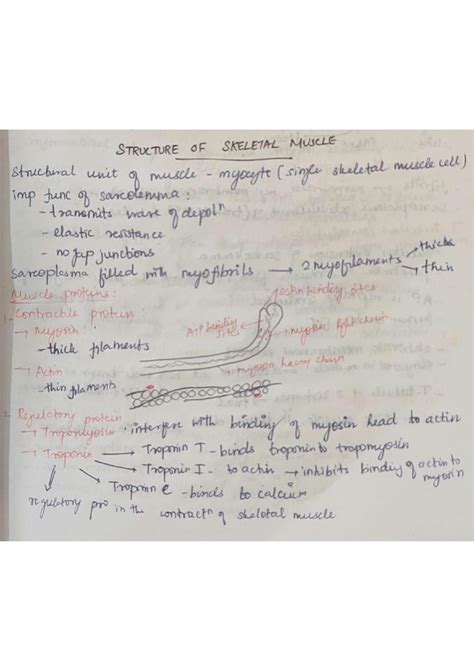 STRUCTURE OF SKELETAL MUSCLE
Structural unit of muscle - myocyte (single skeletal muscle cell)
imp func of sarcolemma :
- transmits wave of depolⁿ
- elastic resistance
- no gap junctions
Sarcoplasma filled with myofibrils → 2 myofilaments → thick
→ thin
Muscle proteins :
Actin binding sites
1. Contractile protein :
→ Myosin
ATP binding sites
→ myosin light chain
- thick filaments
→ Actin
→ myosin heavy chain
- thin filaments
2. Regulatory protein
→ Tropomyosin : interfere with binding of myosin head to actin
→ Troponin → Troponin T - binds troponin to tropomyosin
→ Troponin I - to actin → inhibits binding of actin to myosin
→ Troponin C - binds to calcium
regulatory pro in the contractⁿ of skeletal muscle